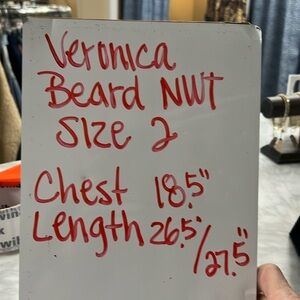 Veronica
Beard NWT
Size 2
Chest 18.5"
Length 26.5"/27.5"